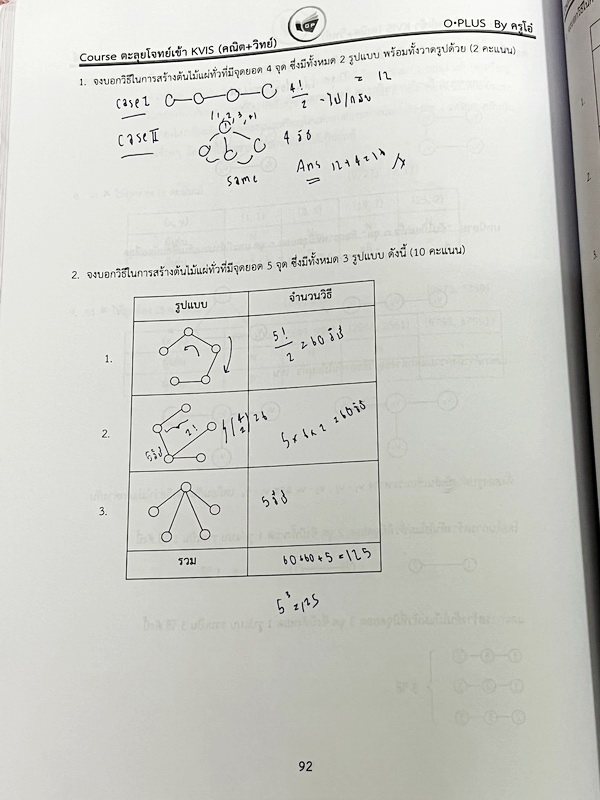 O•PLUS By ครูโอ๋
Course ตะลุยโจทย์เข้า KVIS (คณิต+วิทย์)
1. จงบอกวิธีในการสร้างต้นไม้แผ่ทั่วที่มีจุดยอด 4 จุด ซึ่งมีทั้งหมด 2 รูปแบบ พร้อมทั้งวาดรูปด้วย (2 คะแนน)
case I 4!/2 = 12
- ไป/กลับ
case II 4 วิธี
same Ans 12+4=16
2. จงบอกวิธีในการสร้างต้นไม้แผ่ทั่วที่มีจุดยอด 5 จุด ซึ่งมีทั้งหมด 3 รูปแบบ ดังนี้ (10 คะแนน)
รูปแบบ จำนวนวิธี
1. 5!/2 = 60 วิธี
2. 5วิธี 2! 5×6×2 = 60วิธี
3. 5วิธี
รวม 60+60+5 = 125
5³ = 125
92